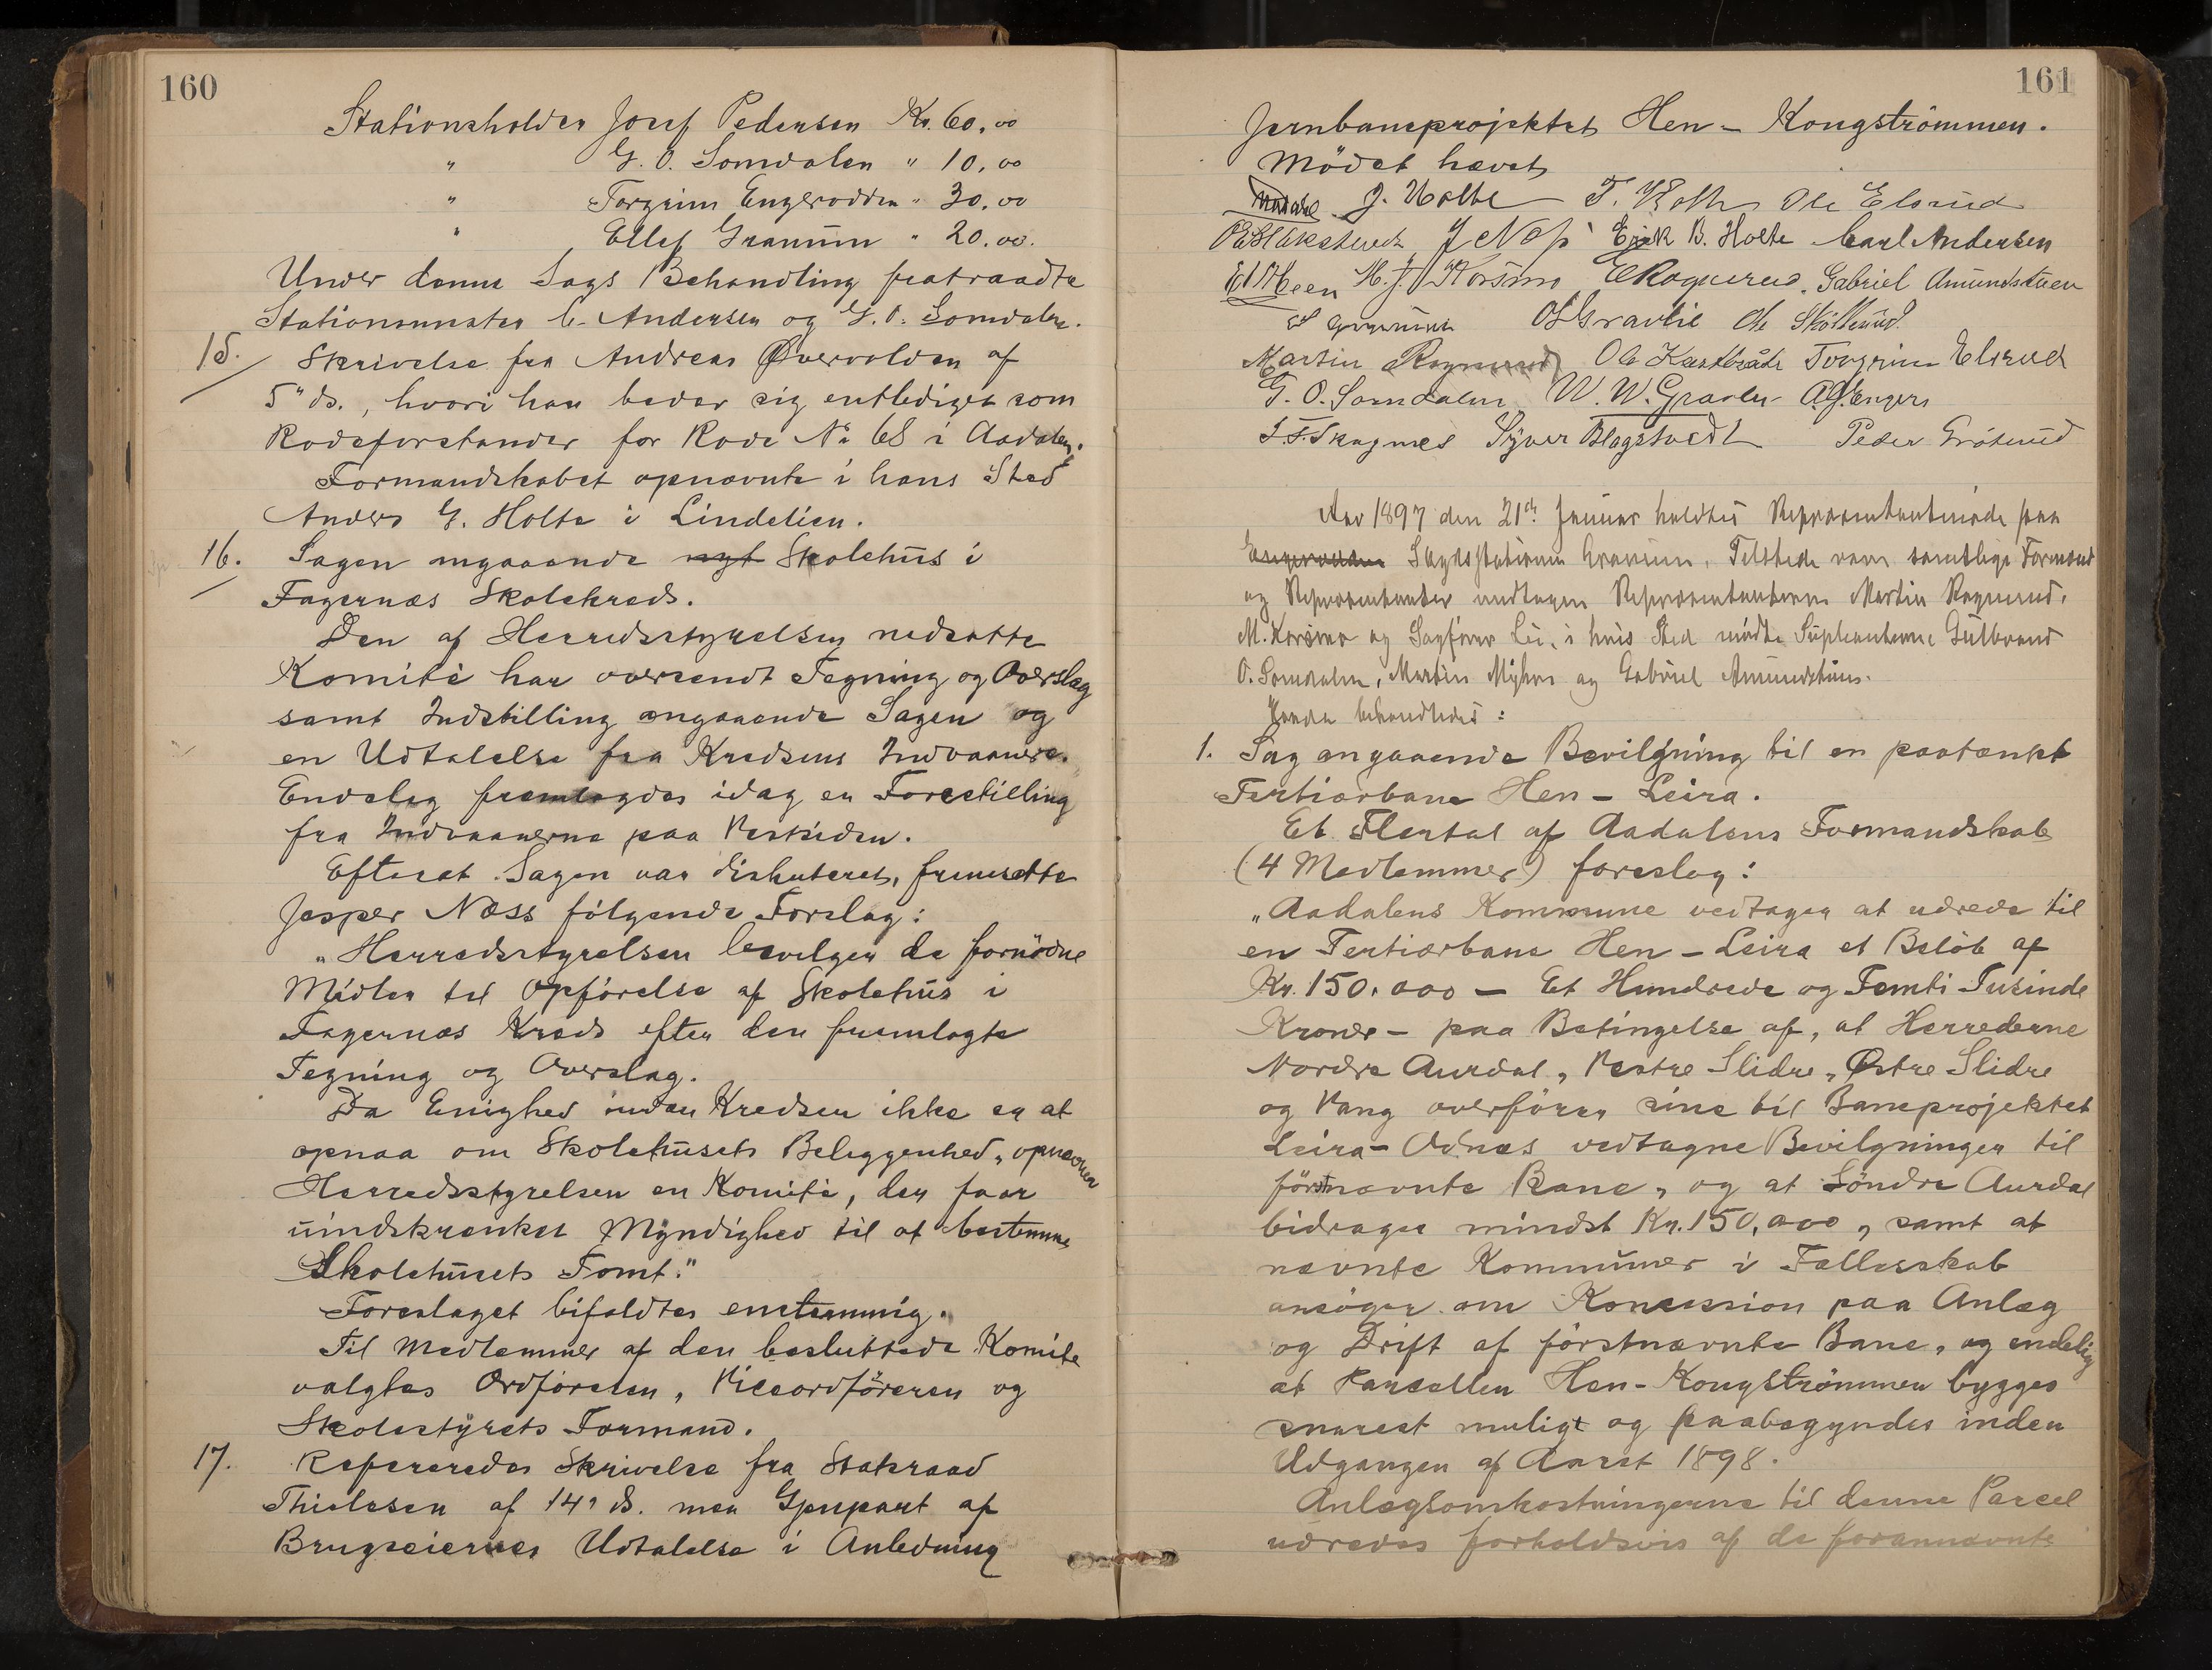 160
Stationsholder Josef Pedersen Kr. 60,00
" G. O. Somdalen " 10,00
" Torgrim Engerodden " 30,00
" Ellef Granum " 20,00.
Under denne Sags Behandling fratraadte
Stationsmester C. Andersen og G. O. Somdalen.
15. Skrivelse fra Andreas Øvervolden af
5" ds., hvori han beder sig entlediget som
Rodeforstander for Rode No 68 i Aadalen.
Formandskabet opnævnte i hans Sted
Anders G. Holte i Lindelien.
16. Sagen angaaende nyt Skolehus i
Fagernæs Skolekreds.
Den af Herredsstyrelsen nedsatte
Komite har oversendt Tegning og Overslag
samt Indstilling angaaende Sagen og
en Udtalelse fra Kredsens Indvaanere.
Endelig fremlagdes idag en Forestilling
fra Indvaanerne paa Vestsiden.
Efterat Sagen var diskuteret, fremsatte
Jesper Næss følgende Forslag:
„Herredsstyrelsen bevilger de fornødne
Midler til Opførelse af Skolehus i
Fagernæs Kreds efter den fremlagte
Tegning og Overslag.
Da Enighed inden Kredsen ikke er at
opnaa om Skolehusets Beliggenhed, opnævner
Herredsstyrelsen en Komite, der faar
uindskrænket Myndighed til at bestemme
Skolehusets Tomt."
Forslaget bifaldtes enstemmig.
Til Medlemmer af den besluttede Komite
valgtes Ordføreren, Viceordføreren og
Skolestyrets Formand.
17. Refereredes Skrivelse fra Statsraad
Thielesen af 14" ds. med Gjenpart af
Brugseiernes Udtalelse i Anledning
161
Jernbaneprojektet Hen - Kongstrømmen.
Mødet hævet
J. Holte Ole Elsrud
J Næss Erik B. Holte Carl Andersen
M. J. Korsmo Gabriel Amundstuen
Martin Ragnerud Torgrim Elsrud
G. O. Somdalen W. W. Gravli
Syver Blagstvedt Peder Grøterud
Aar 1897 den 21de Januar holdtes Repræsentantmøde paa
Engerodden Skydsstationen Granum. Tilstede vare samtlige Formænd
og Repræsentanter undtagen Repræsentanterne Martin Ragnerud,
M. Korsmo og Sagfører Lie, i hvis Sted mødte Supleanterne Gulbrand
O. Somdalen, Martin Myhre og Gabriel Amundstuen.
Herda behandledes:
1. Sag angaaende Bevilgning til en paatænkt
Tertiærbane Hen - Leira.
Et Flertal af Aadalens Formandskab
(4 Medlemmer) foreslog:
„Aadalens Kommune vedtager at udrede til
en Tertiærbane Hen - Leira et Beløb af
Kr. 150,000 - Et Hundrede og Femti Tusinde
Kroner - paa Betingelse af, at Herrederne
Nordre Aurdal, Vestre Slidre, Østre Slidre
og Vang overfører sine til Baneprojektet
Leira - Odnæs vedtagne Bevilgninger til
førstnævnte Bane, og at Søndre Aurdal
bidrager mindst Kr. 150,000, samt at
nævnte Kommuner i Fællesskab
ansøger om Koncession paa Anlæg
og Drift af førstnævnte Bane, og endelig
at Parcellen Hen - Kongstrømmen bygges
snarest muligt og paabegyndes inden
Udgangen af Aaret 1898.
Anlægsomkostningerne til denne Parcel
udredes forholdsvis af de forannævnte